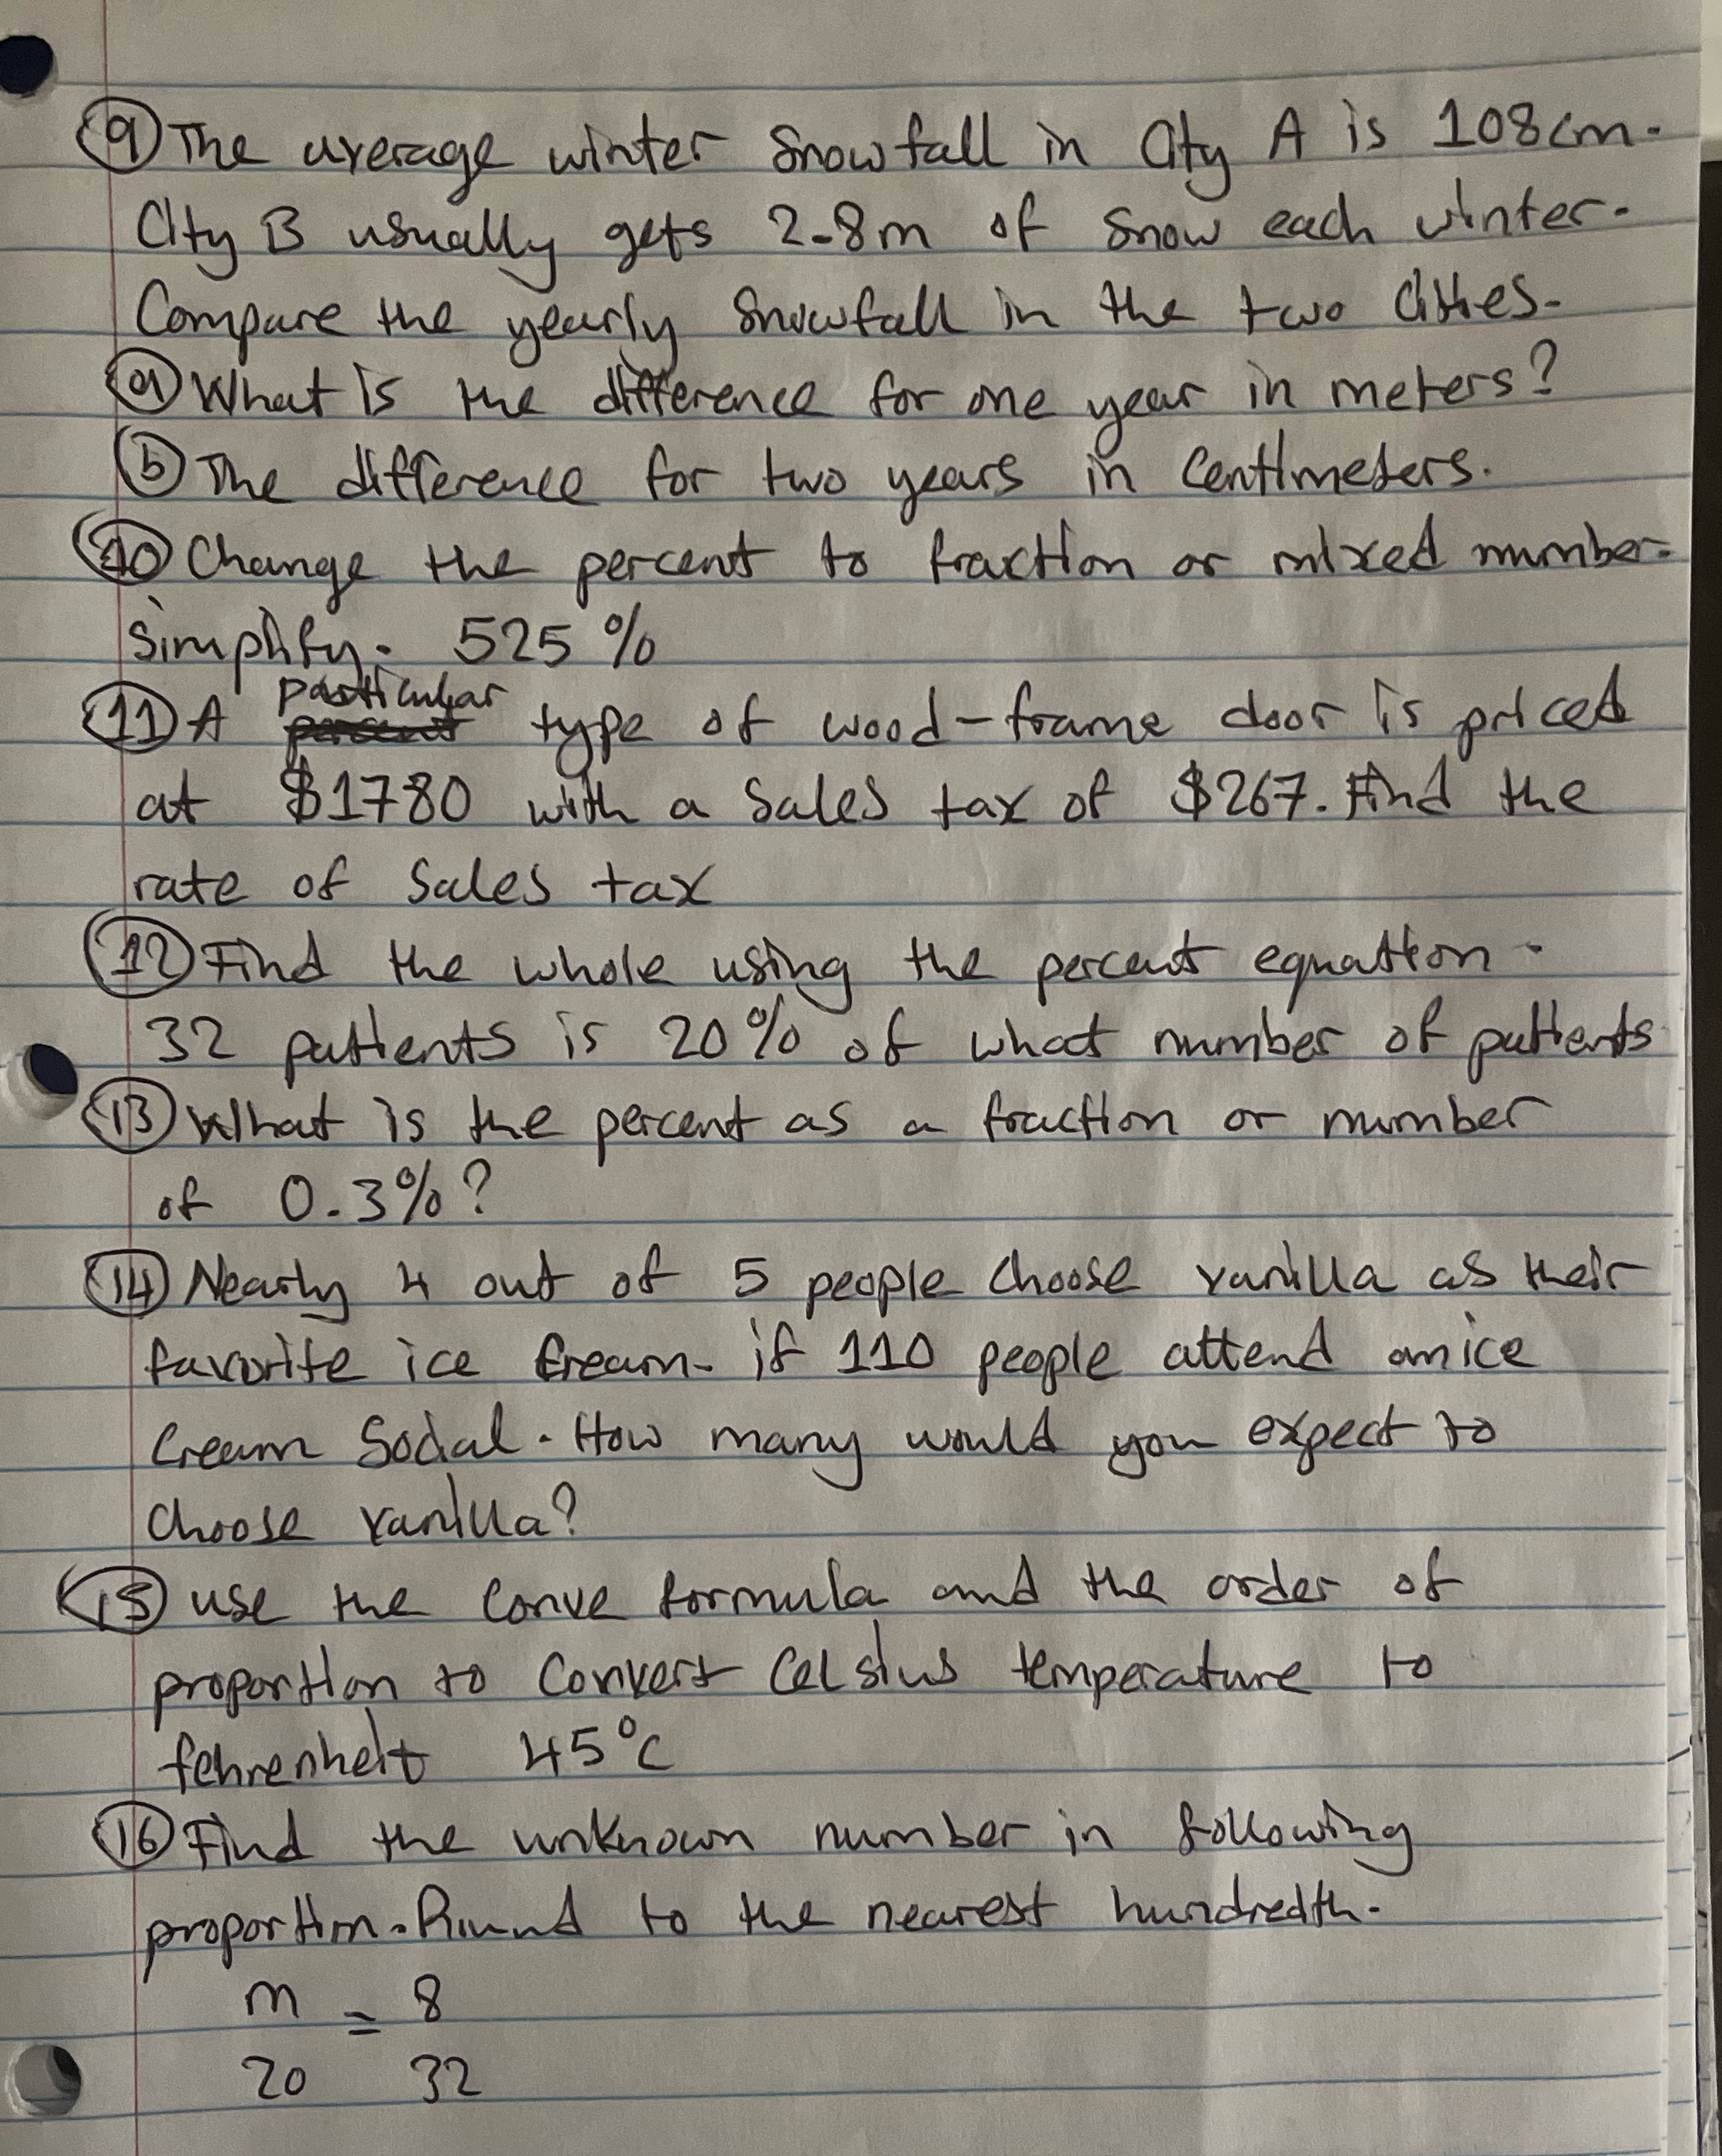 9 The average winter snowfall in City A is 108cm.
City B usually gets 2.8m of snow each winter.
Compare the yearly snowfall in the two cities.
a What is the difference for one year in meters?
b The difference for two years in centimeters.
10 Change the percent to fraction or mixed number.
simplify. 525 %
particular
11 A percent type of wood-frame door is priced
at $1780 with a sales tax of $267. Find the
rate of sales tax
12 Find the whole using the percent equation.
32 patients is 20% of what number of patients
13 What is the percent as a fraction or number
of 0.3%?
14 Nearly 4 out of 5 people choose vanilla as their
favorite ice cream. if 110 people attend an ice
cream social. How many would you expect to
choose vanilla?
15 use the conve formula and the order of
proportion to convert Celsius temperature to
fehrenheit 45°C
16 Find the unknown number in following
proportion. Round to the nearest hundredth.
m = 8
20 32